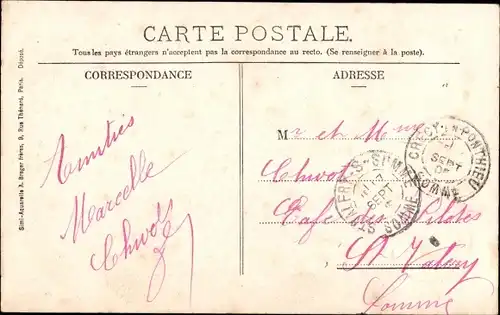 CARTE POSTALE.
Tous les pays étrangers n'acceptent pas la correspondance au recto. (Se renseigner à la poste).
CORRESPONDANCE
ADRESSE
Simi-Aquarelle A. Breger frères, 9, Rue Thénard, Paris. Déposé.
Amitiés
Marcelle
Chwots
Mr et Mme
Chwots
Café des Pilotes
St Valery
Somme
CRECY-EN-PONTHIEU
SEPT
SOMME
ST VALERY-S-SOMME
SEPT
SOMME